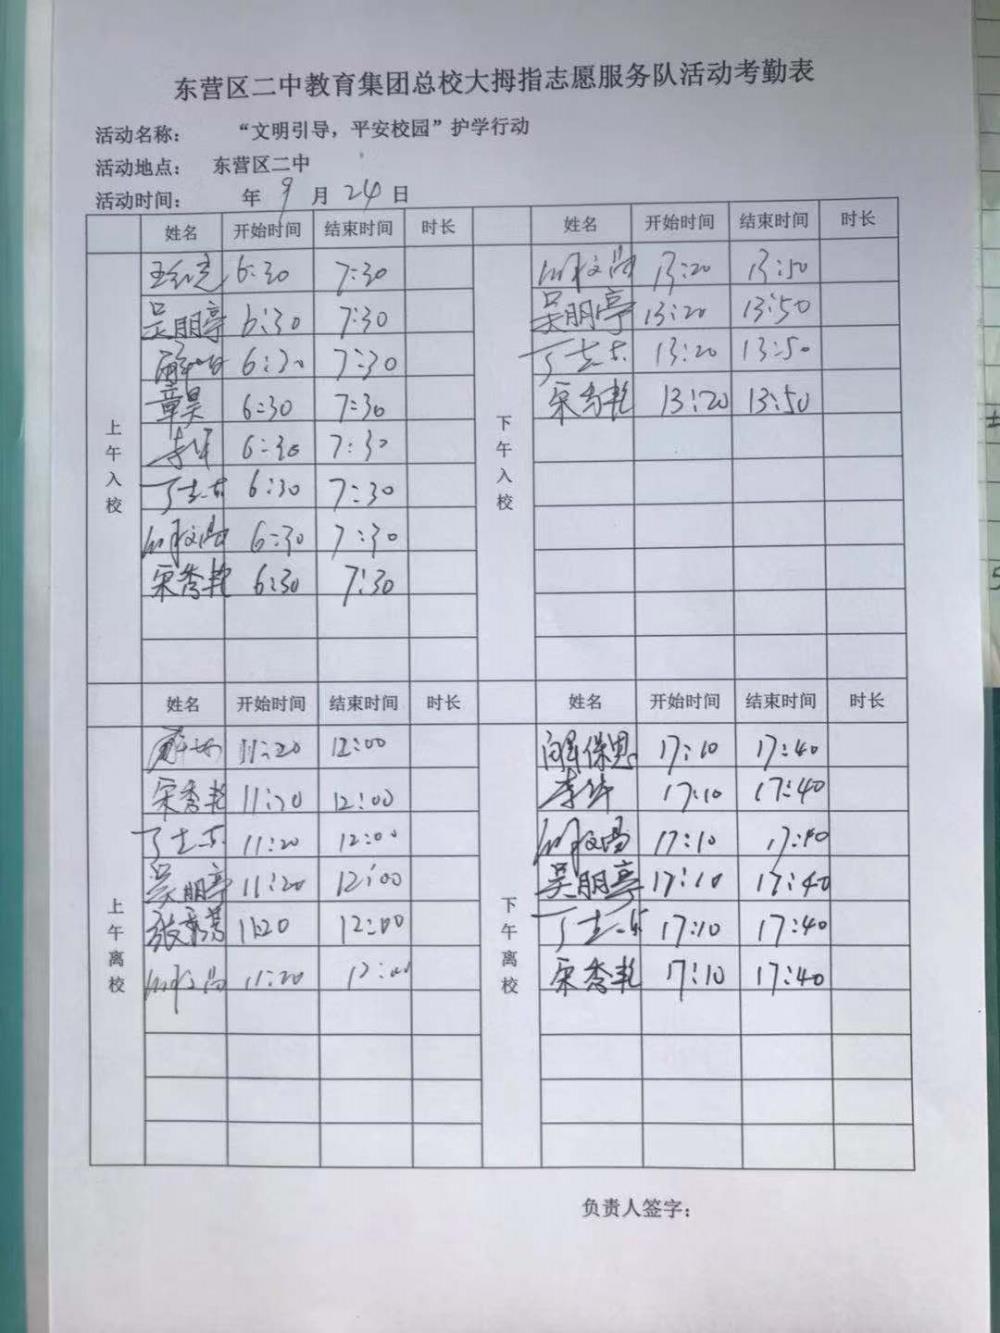 东营区二中教育集团总校大拇指志愿服务队活动考勤表
活动名称： “文明引导，平安校园”护学行动
活动地点： 东营区二中
活动时间： 年 9 月 24 日
姓名 开始时间 结束时间 时长 姓名 开始时间 结束时间 时长
上午入校
6:30 7:30
吴朋亭 6:30 7:30
6:30 7:30
章昊 6:30 7:30
6:30 7:30
丁志东 6:30 7:30
6:30 7:30
宋秀艳 6:30 7:30
下午入校
13:20 13:50
吴朋亭 13:20 13:50
丁志东 13:20 13:50
宋秀艳 13:20 13:50
姓名 开始时间 结束时间 时长 姓名 开始时间 结束时间 时长
上午离校
11:20 12:00
宋秀艳 11:20 12:00
丁志东 11:20 12:00
吴朋亭 11:20 12:00
11:20 12:00
11:20 12:00
下午离校
保恩 17:10 17:40
17:10 17:40
17:10 17:40
吴朋亭 17:10 17:40
丁志东 17:10 17:40
宋秀艳 17:10 17:40
负责人签字：